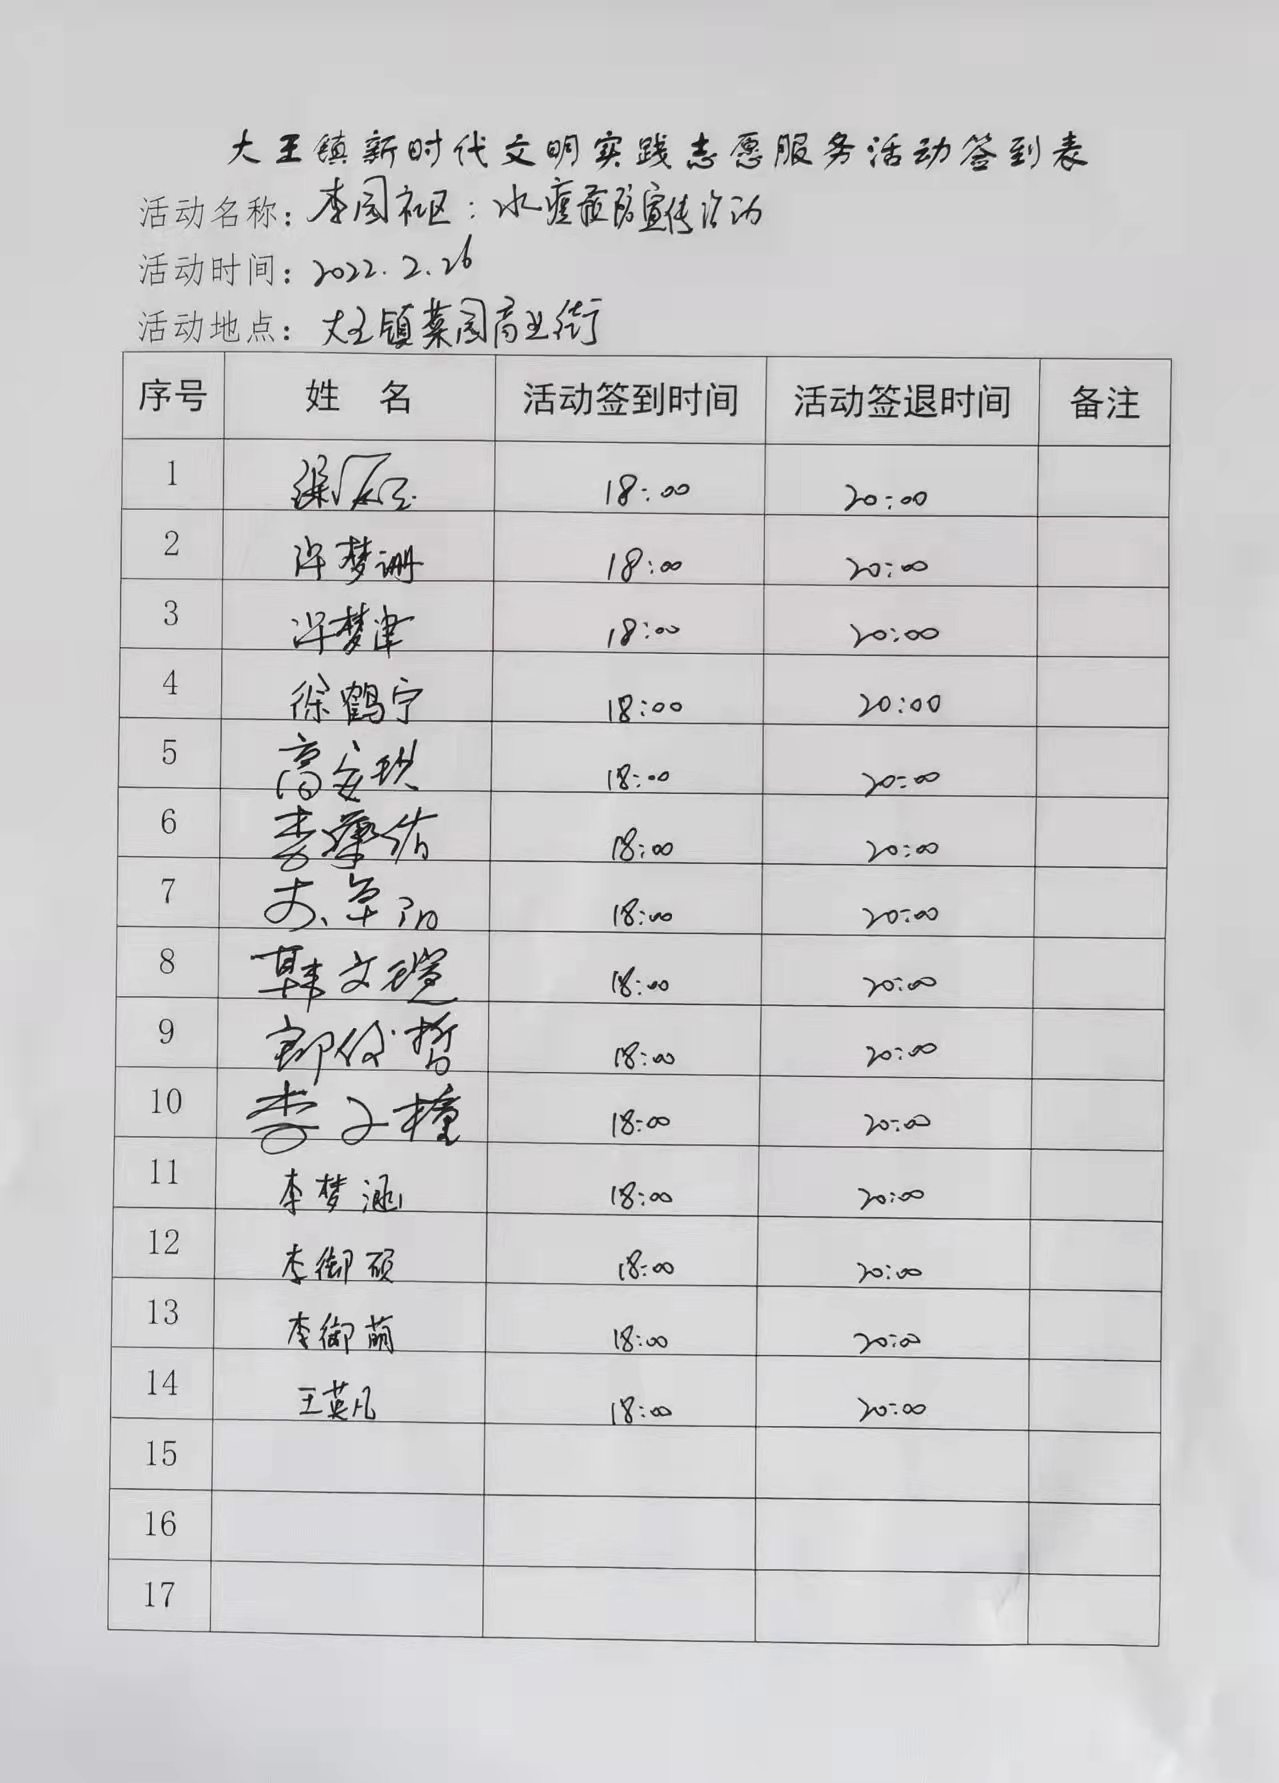 大王镇新时代文明实践志愿服务活动签到表
活动名称：李园社区：水痘预防宣传活动
活动时间：2022.2.26
活动地点：大王镇菜园商业街
序号 姓名 活动签到时间 活动签退时间 备注
1 18:00 20:00
2 许梦珊 18:00 20:00
3 许梦津 18:00 20:00
4 徐鹤宁 18:00 20:00
5 高安琪 18:00 20:00
6 李肇佑 18:00 20:00
7 18:00 20:00
8 韩文瑄 18:00 20:00
9 郭俊哲 18:00 20:00
10 李子橦 18:00 20:00
11 李梦涵 18:00 20:00
12 李御硕 18:00 20:00
13 李御萌 18:00 20:00
14 王英凡 18:00 20:00
15
16
17